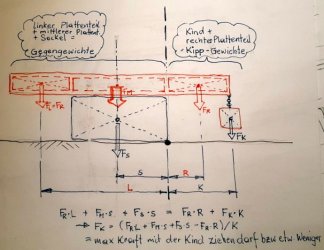 Linker Plattenteil
+ mittlerer Plattent.
+ Sockel =
Gegengewichte
Kind +
rechte Plattenteil
= Kipp-Gewichte
F_L = F_R
F_M
F_R
F_K
F_S
S
R
L
K
F_R · L + F_M · S + F_S · S = F_R · R + F_K · K
→ F_K = (F_R L + F_M · S + F_S · S - F_R · R) / K
= max Kraft mit der Kind ziehen darf bzw etw weniger